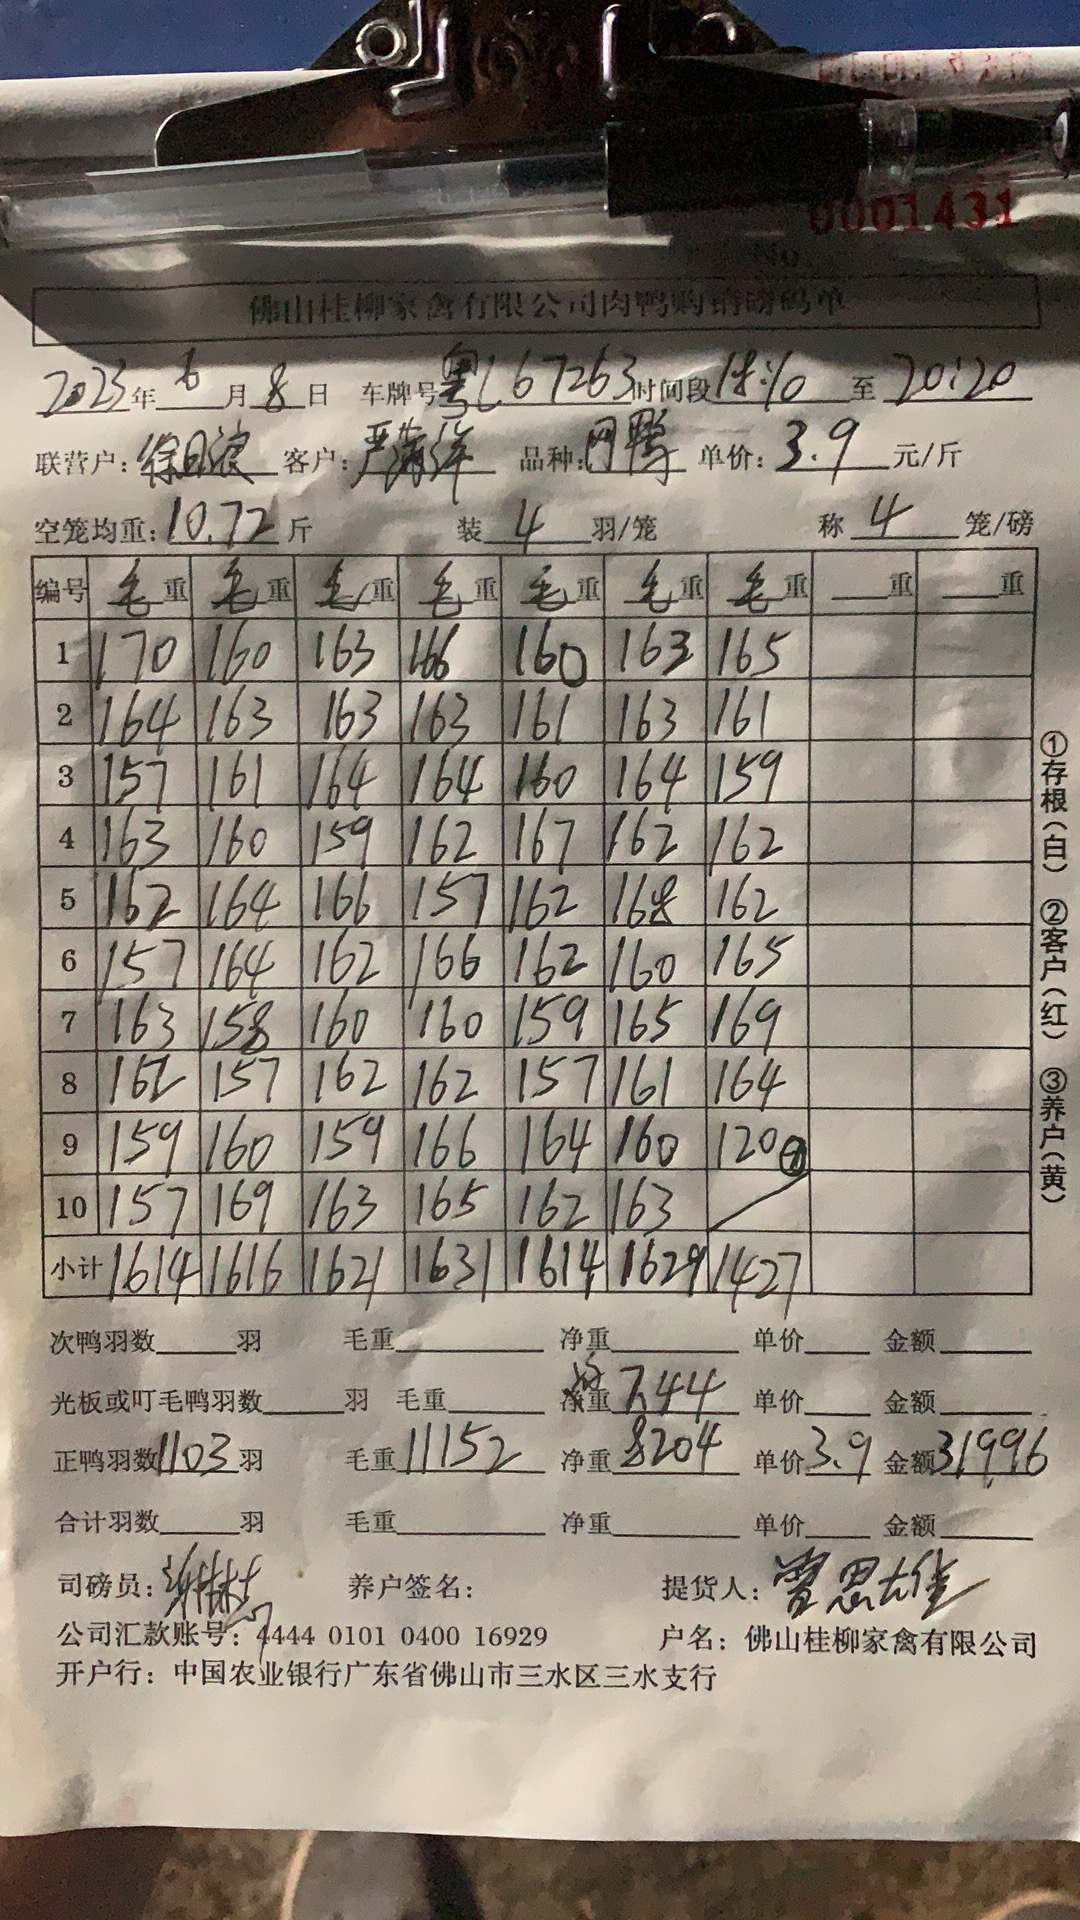 0001431
No.
佛山桂柳家禽有限公司肉鸭购销磅码单
2023年6月8日 车牌号粤L67263时间段18:10至20:20
联营户: 客户:严 品种: 单价:3.9元/斤
空笼均重:10.72斤 装4羽/笼 称4笼/磅
编号 毛重 毛重 毛重 毛重 毛重 毛重 毛重 重 重
1 170 160 163 166 160 163 165
2 164 163 163 163 161 163 161
3 157 161 164 164 160 164 159
4 163 160 159 162 167 162 162
5 162 164 166 157 162 168 162
6 157 164 162 166 162 160 165
7 163 158 160 160 159 165 169
8 162 157 162 162 157 161 164
9 159 160 159 166 164 160 120
10 157 169 163 165 162 163
小计 1614 1616 1621 1631 1614 1629 1427
次鸭羽数 羽 毛重 净重 单价 金额
光板或叮毛鸭羽数 羽 毛重 净重 7.44 单价 金额
正鸭羽数1103羽 毛重11152 净重8204 单价3.9 金额31996
合计羽数 羽 毛重 净重 单价 金额
司磅员: 养户签名: 提货人:
公司汇款账号: 4444 0101 0400 16929 户名: 佛山桂柳家禽有限公司
开户行: 中国农业银行广东省佛山市三水区三水支行
①存根(白) ②客户(红) ③养户(黄)